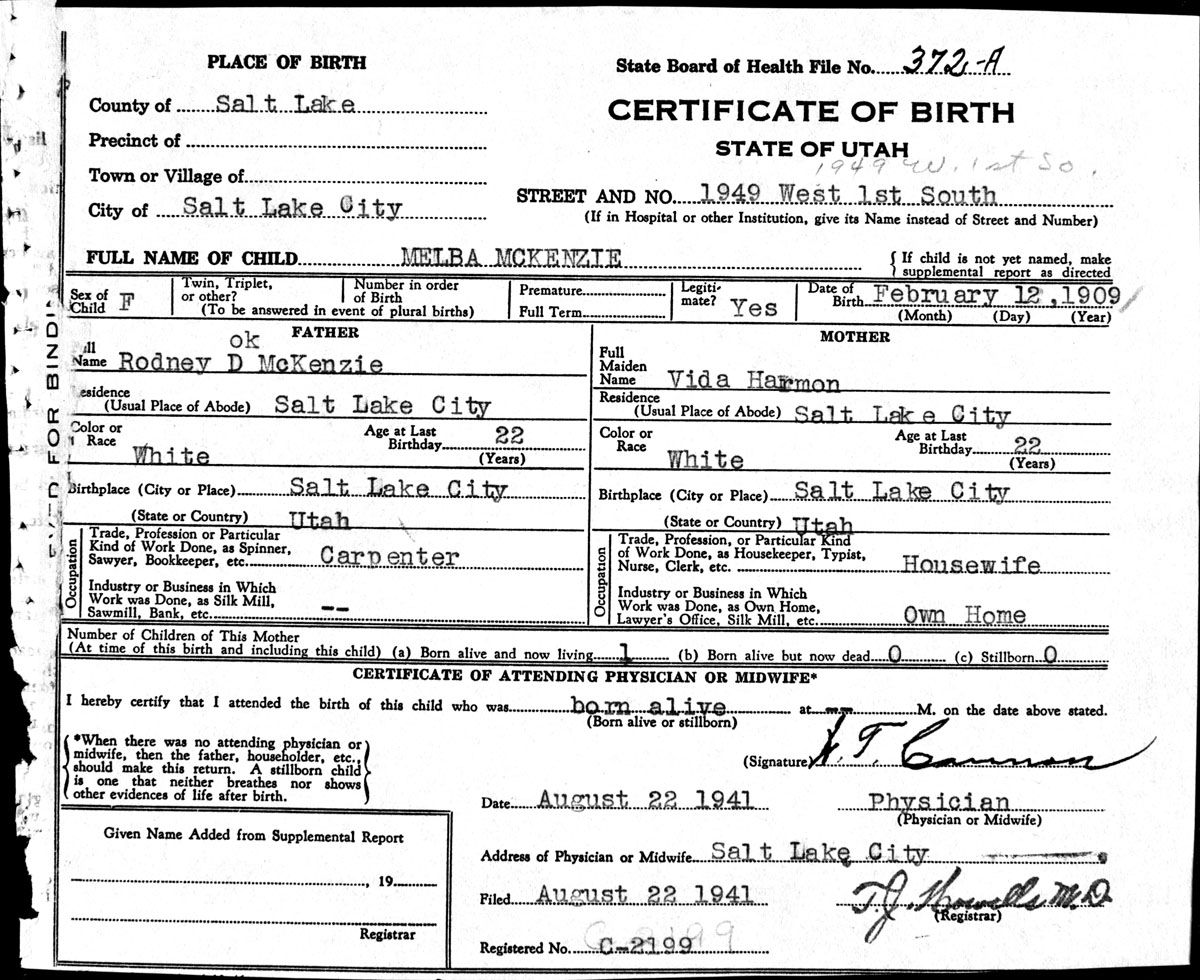 PLACE OF BIRTH
State Board of Health File No. 372-A
County of Salt Lake
CERTIFICATE OF BIRTH
Precinct of
STATE OF UTAH
1949 W. 1st So.
Town or Village of
STREET AND NO. 1949 West 1st South
City of Salt Lake City
(If in Hospital or other Institution, give its Name instead of Street and Number)
FULL NAME OF CHILD MELBA MCKENZIE
{ If child is not yet named, make
supplemental report as directed
Sex of Child F
Twin, Triplet, or other?
Number in order of Birth
(To be answered in event of plural births)
Premature
Full Term
Legiti-mate? Yes
Date of Birth February 12, 1909
(Month) (Day) (Year)
FATHER
ok
Name Rodney D McKenzie
Residence
(Usual Place of Abode) Salt Lake City
Color or Race White
Age at Last Birthday 22
(Years)
Birthplace (City or Place) Salt Lake City
(State or Country) Utah
Occupation
Trade, Profession or Particular
Kind of Work Done, as Spinner,
Sawyer, Bookkeeper, etc. Carpenter
Industry or Business in Which
Work was Done, as Silk Mill,
Sawmill, Bank, etc. --
MOTHER
Full Maiden Name Vida Harmon
Residence
(Usual Place of Abode) Salt Lake City
Color or Race White
Age at Last Birthday 22
(Years)
Birthplace (City or Place) Salt Lake City
(State or Country) Utah
Occupation
Trade, Profession, or Particular Kind
of Work Done, as Housekeeper, Typist,
Nurse, Clerk, etc. Housewife
Industry or Business in Which
Work was Done, as Own Home,
Lawyer's Office, Silk Mill, etc. Own Home
Number of Children of This Mother
(At time of this birth and including this child) (a) Born alive and now living 1 (b) Born alive but now dead 0 (c) Stillborn 0
CERTIFICATE OF ATTENDING PHYSICIAN OR MIDWIFE*
I hereby certify that I attended the birth of this child who was born alive at -- M. on the date above stated.
(Born alive or stillborn)
*When there was no attending physician or
midwife, then the father, householder, etc.,
should make this return. A stillborn child
is one that neither breathes nor shows
other evidences of life after birth.
(Signature) T. Cannon
Date August 22 1941 Physician
(Physician or Midwife)
Address of Physician or Midwife Salt Lake City
Filed August 22 1941 T.J. Howells M.D.
(Registrar)
Registered No. C-2199
C 2199
Given Name Added from Supplemental Report
, 19
Registrar
FOR BINDING